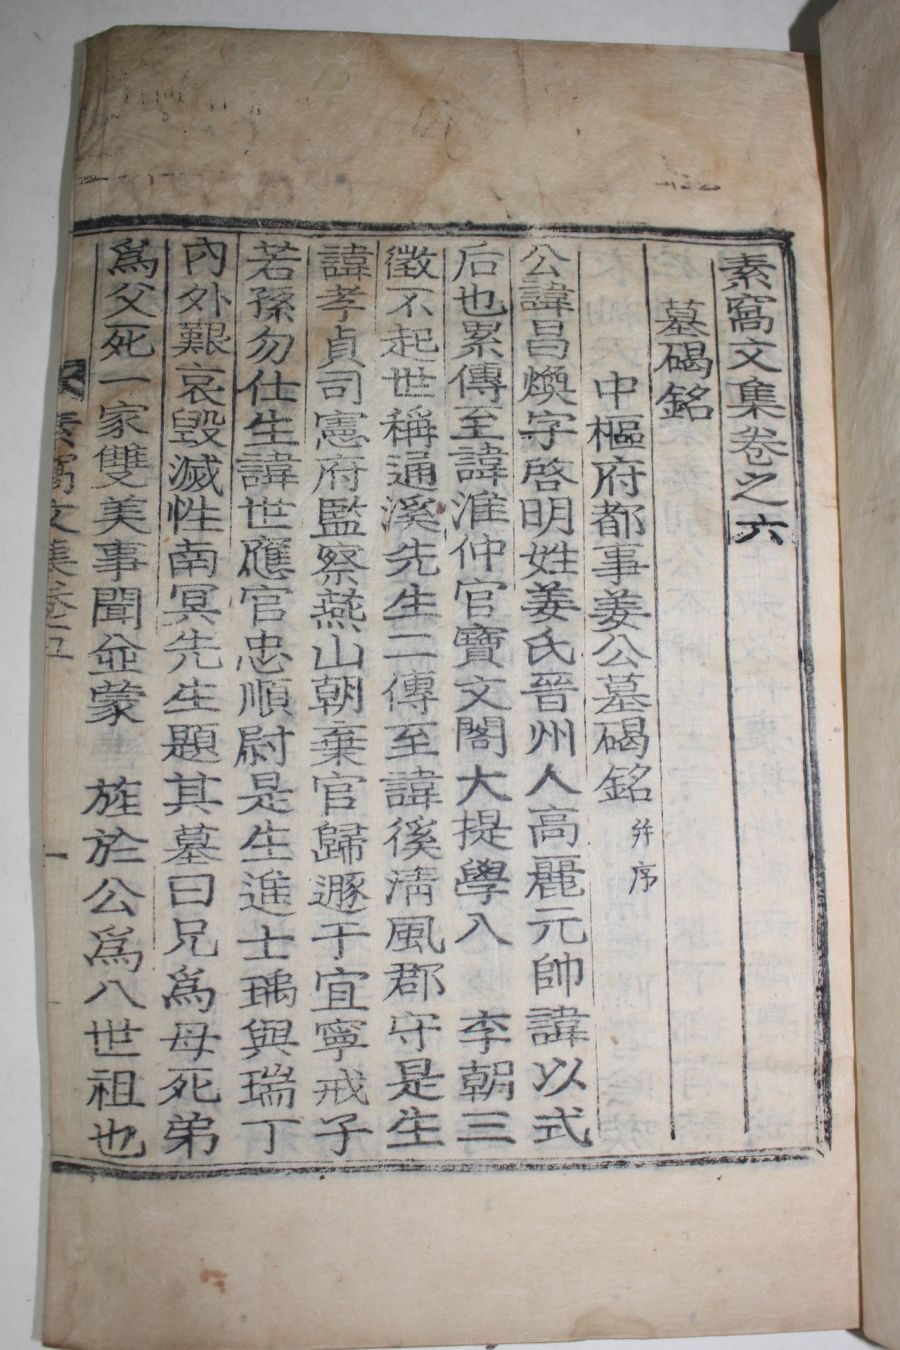 素窩文集卷之六
墓碣銘
中樞府都事姜公墓碣銘 并序
公諱昌煥字啓明姓姜氏晉州人高麗元帥諱以式
后也累傳至諱淮仲官寶文閣大提學入 李朝三
徵不起世稱通溪先生二傳至諱徯淸風郡守是生
諱孝貞司憲府監察燕山朝棄官歸遯于宜寧戒子
若孫勿仕生諱世應官忠順尉是生進士瑀與瑞丁
內外艱哀毁滅性南冥先生題其墓曰兄爲母死弟
爲父死一家雙美事聞並蒙 旌於公爲八世祖也
素窩文集卷之五
一